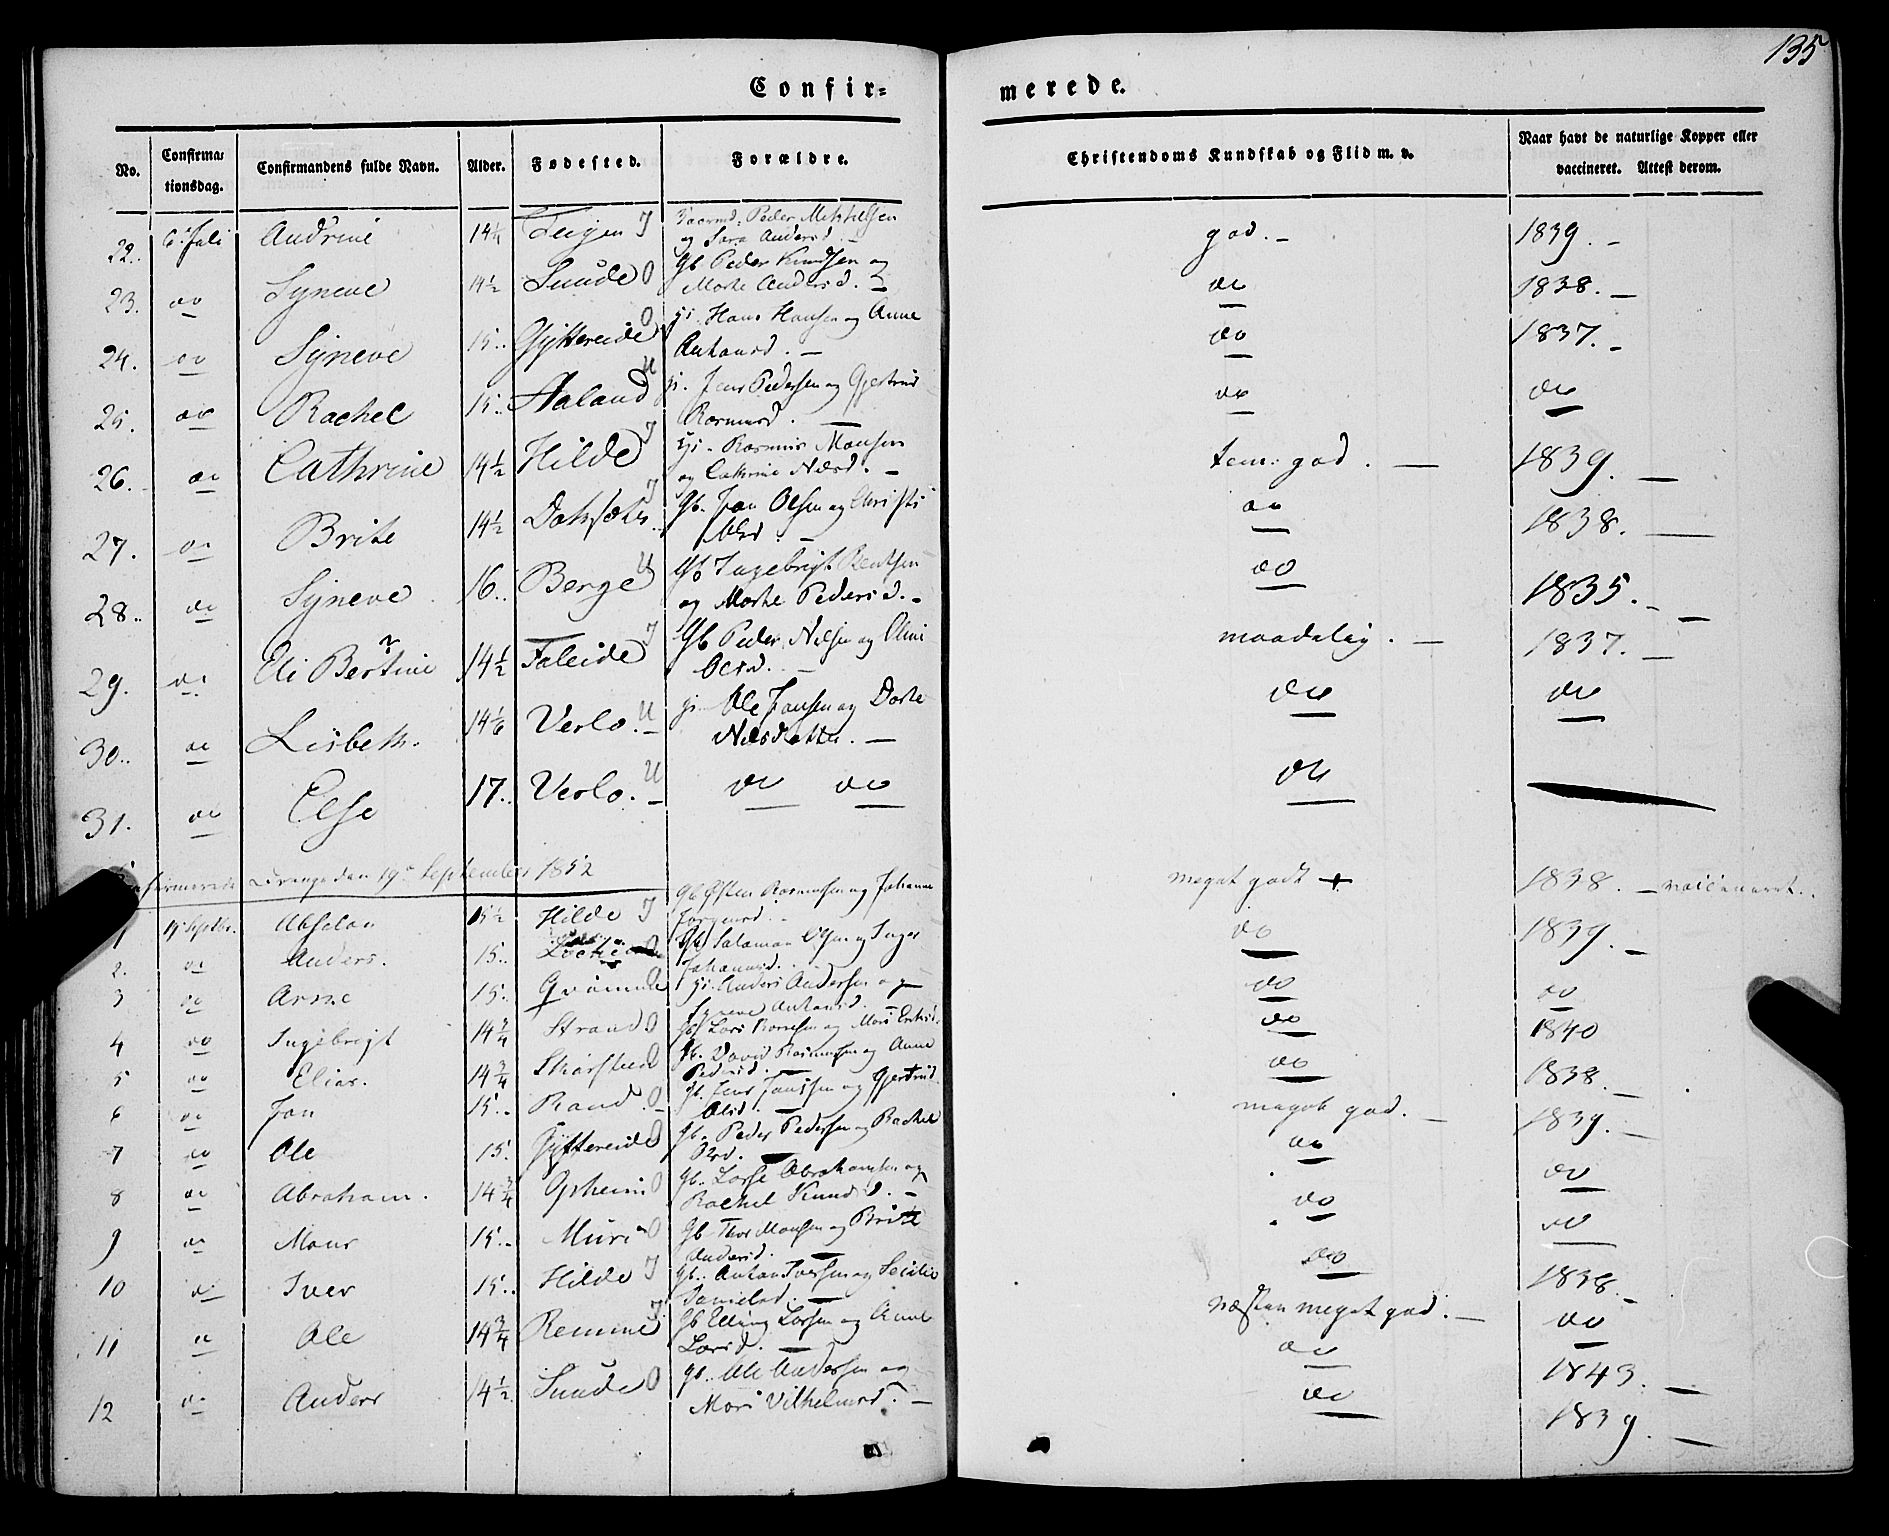 135
Confir= merede.
No. Confirma= tionsdag. Confirmandens fulde Navn. Alder. Fødested. Forældre. Christendoms Kundskab og Flid m. v. Naar havt de naturlige Kopper eller vaccineret. Attest derom.
22. 6. Juli Andrine 14¼ J Peder og Sara Andersd. god. – 1839. –
23. do Syneve 14½ Sunde O Gb. Peder Knudsen og Marte Andersd. – do 1838. –
24. do Syneve 15.. Gyttereide O Hans Hansen og Anne Antonsd. – do 1837. –
25. do Rachel 15.. Aaland U Jens Pedersen og Gjertrud Rasmusd. – do do
26. do Cathrine 14½ Hilde J Rasmus Monsen og Cathrine Nilsd. – tem: god. – 1839. –
27. do Brite 14½ J Gb. Jon Olsen og Christi – do 1838. –
28. do Syneve 16.. Berge U Gb Ingebrigt og Marte Pedersd. – do 1835. –
29. do Eli Bertine 14½ Faleide J Gb Peder Nilsen og Oline Olsd. – maadelig. – 1837. –
30. do Lisbeth. 14⅙ Verlo. U Ole Jonsen og Dorte Nilsdatter. – do do
31. do Else 17.. Verlo. U do do do –
Confirmerede den 19de September 1852
1 19 Septbr. Absolon 15½ Hilde J Gb Østen Rasmusen og Johanne meget godt + 1838. – vaccineret.
2. do Anders. 15.. O Gb Salamon Olsen og Inger Johannesd. do 1839. –
3 do Arne 15.. O Anders Andersen og Syneve Antonsd. do do
4 do Ingebrigt 14¾ Strand O Gb Lars og Mari do 1840
5 do Elias. 14¾ O Gb. David Rasmusen og Anne Pedersd. – do 1838. –
6 do Jon 15.. Rand. O Gb. Jens Jonssen og Gjertrud Olsd. – meget god. – 1839. –
7 do Ole 15. Gyttereide O Gb. Peder Pedersen og Rachel Olsd. – do do
8 do Abraham. 14¾ Opheim O Gb. Lasse Abrahamsen og Rachel Knudsd. – do do
9 do Mons 15.. Muri O Gb Thor Monsen og Brite Andersd. – do 1838. –
10 do Iver 15.. Hilde J Gb. Anton Iversen og Secilie Danielsd. – næsten meget god. – do
11 do Ole 14¾ Remme J Gb Elling Larsen og Anne Larsd. – do 1843. –
12 do Anders 14½ Sunde O Gb. Ole Andersen og Mari Vilhelmsd. – do 1839. –